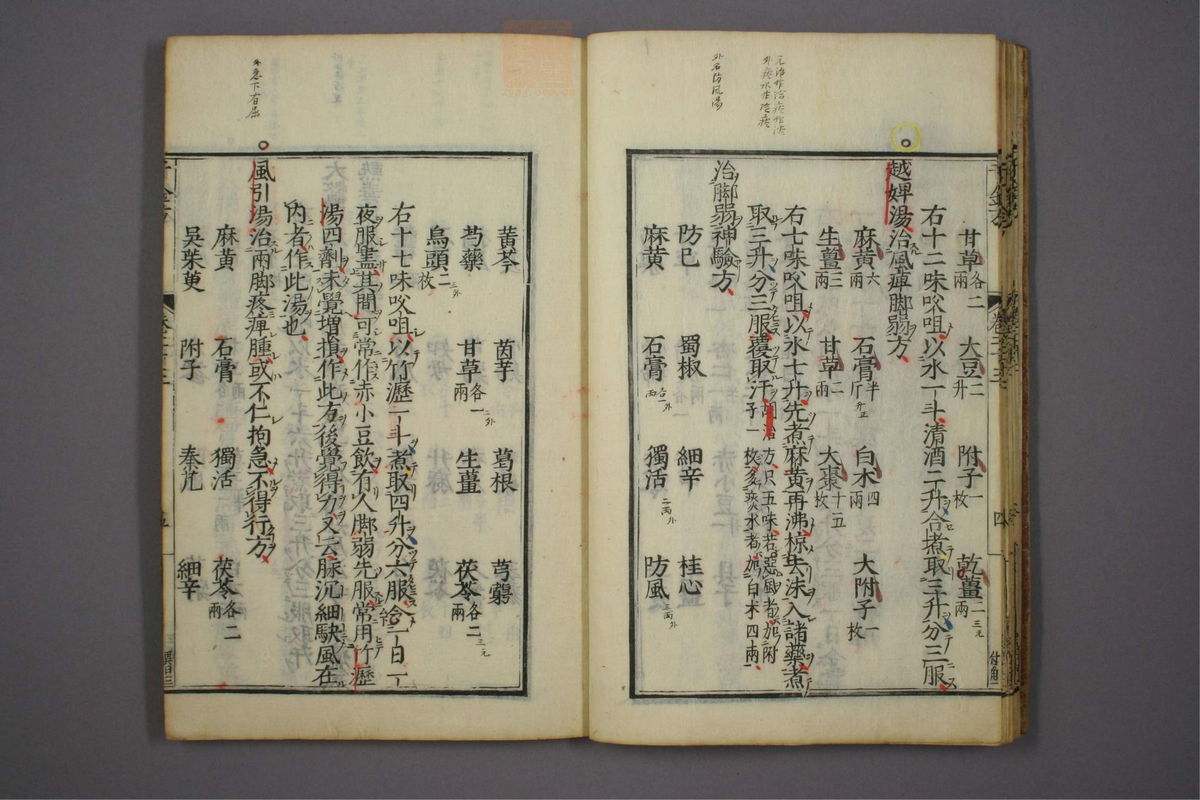 甘草各二兩 大豆二升 附子一枚 乾薑二兩
右十二味㕮咀以水一斗清酒二升合煮取三升分三服
越婢湯治風痺脚弱方
麻黃六兩 石膏半斤 白朮四兩 大附子一枚
生薑三兩 甘草二兩 大棗十五枚
右七味㕮咀以水七升先煮麻黃再沸掠去沫入諸藥煮
取三升分三服覆取汗 胡洽方只五味若惡風者加附子一枚多痰水者加白朮四兩
治脚弱神驗方
防巳 蜀椒 細辛 桂心
麻黃 石膏 獨活 防風
黃芩 茵芋 葛根 芎藭
芍藥 甘草各一兩 生薑 茯苓各二兩
烏頭二枚
右十七味㕮咀以竹瀝一斗煮取四升分六服令一日一
夜服盡其間可常作赤小豆飲有人脚弱先服常用竹瀝
湯四劑未覺增損作此方後覺得力又云脉沉細駃風在
內者作此湯也
風引湯治兩脚疼痺腫或不仁拘急不得行方
麻黃 石膏 獨活 茯苓各二兩
吳茱萸 附子 秦艽 細辛